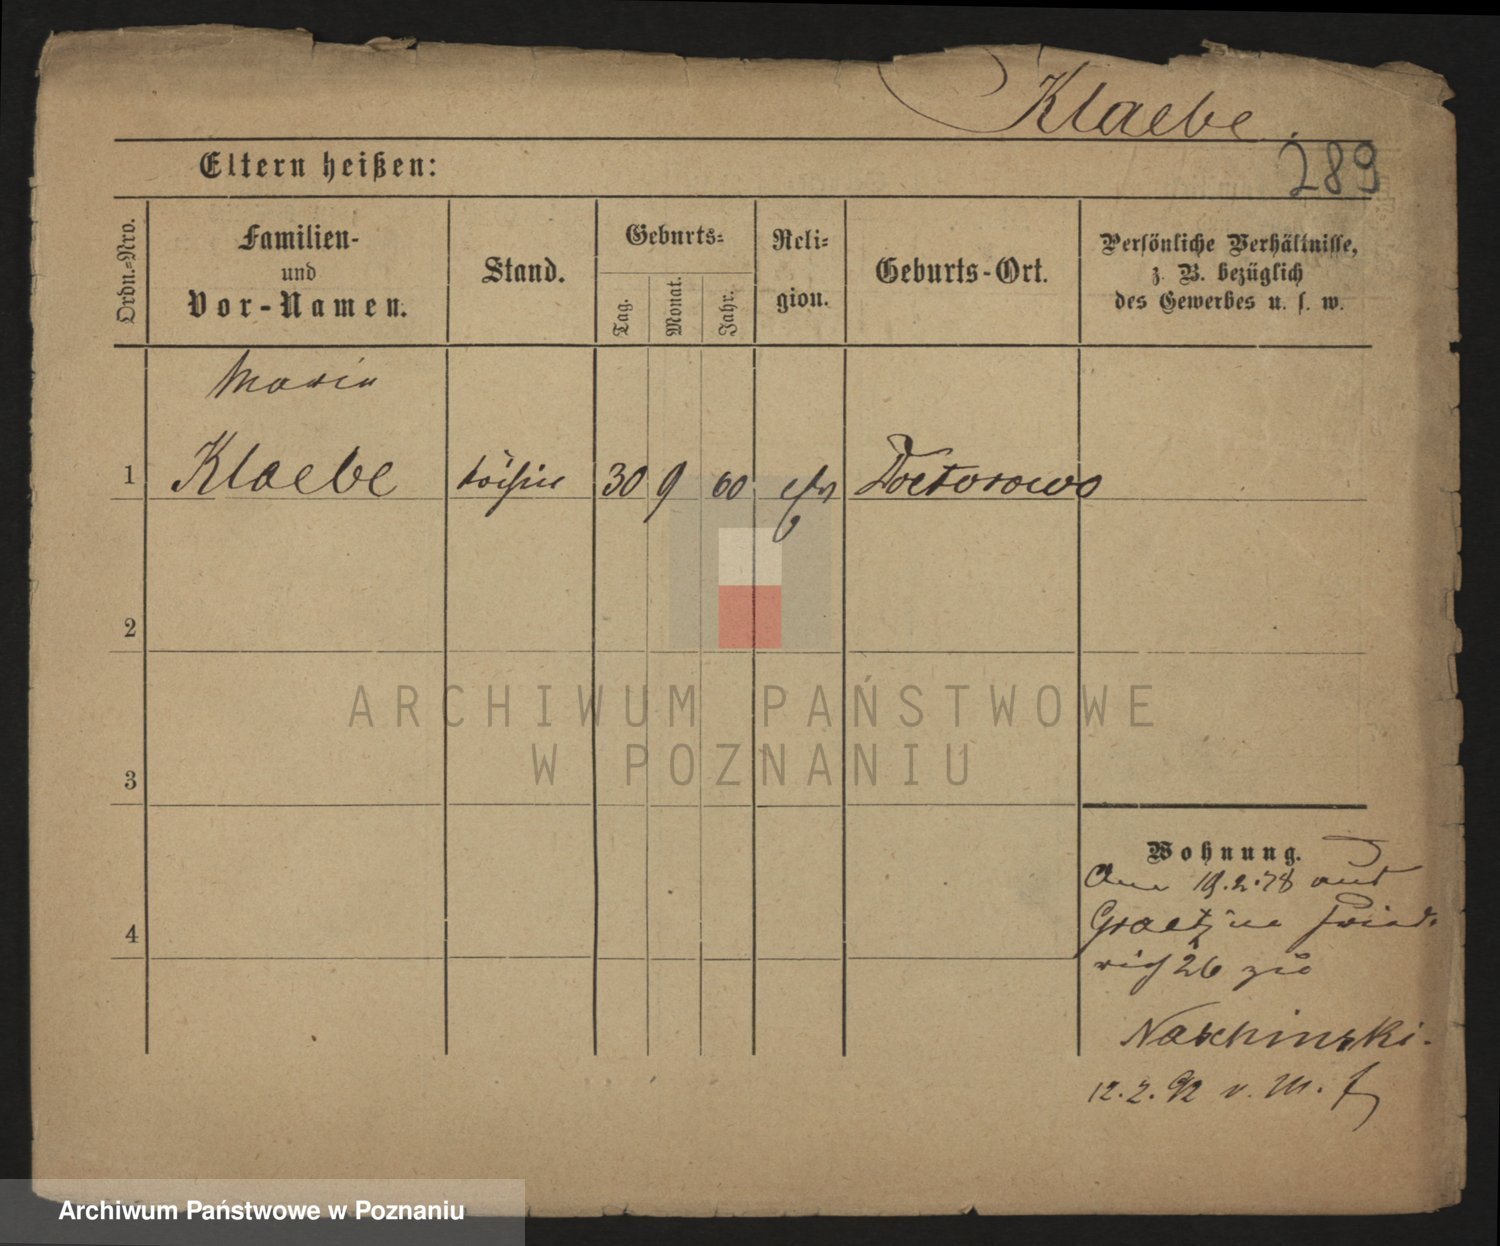 Klaebe.
289
Eltern heißen:
Ordn.-Nro.
Familien-
und
Vor-Namen.
Stand.
Geburts-
Tag.
Monat.
Jahr.
Reli-
gion.
Geburts-Ort.
Persönliche Verhältnisse,
z. B. bezüglich
des Gewerbes u. s. w.
Maria
1 Klaebe 30 9 60 Doctorowo
2
3
4
Wohnung.
19.2.78 aus
Graetz
26
12.2.92 v. M.
ARCHIWUM PAŃSTWOWE
W POZNANIU
Archiwum Państwowe w Poznaniu